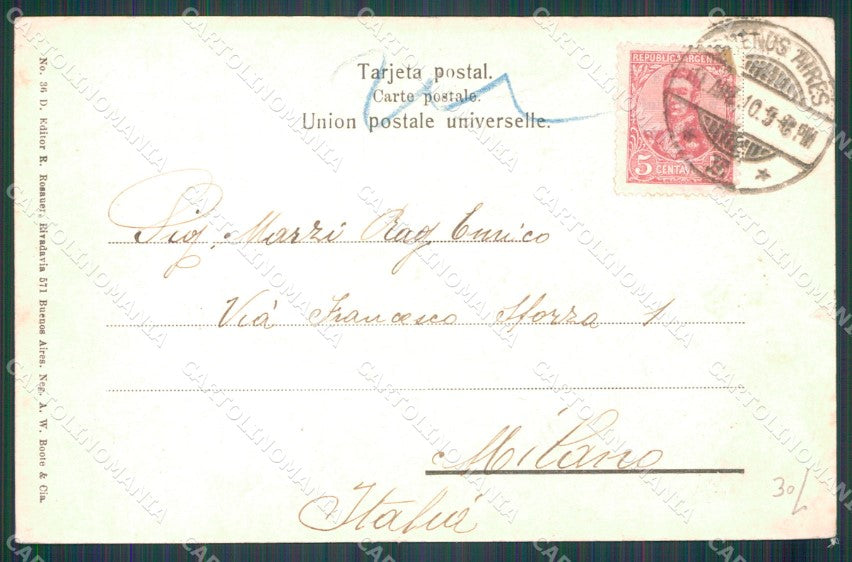 Tarjeta postal.
Carte postale.
Union postale universelle.
REPUBLICA ARGENTINA
5 CENTAVOS
BUENOS AIRES
Sig. Marzi Rag Enrico
Via Francesco Sforza 1
Milano
Italia
30/
No. 36 D. Editor R. Rosauer, Rivadavia 571 Buenos Aires. Neg. A. W. Boote & Cia.
CARTOLINOMANIA